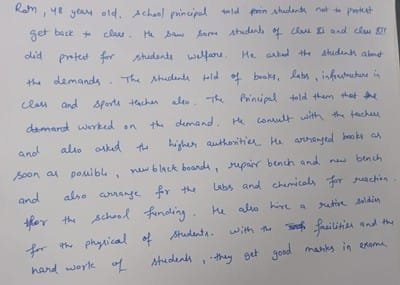 Ram, 48 years old. School principal told students not to protest
get back to class. He saw some students of class XI and class XII
did protest for students welfare. He asked the students about
the demands. The students told of books, labs, infrastructure in
class and sports teacher also. The Principal told them that
worked on the demand. He consult with the teachers
and also asked the higher authorities. He arranged books as
soon as possible, new black boards, repair bench and new bench
and also arrange for the labs and chemicals for reaction.
for the school funding. He also hire a retire soldier
for the physical of students. With the facilities and the
hard work of students, they get good marks in exams